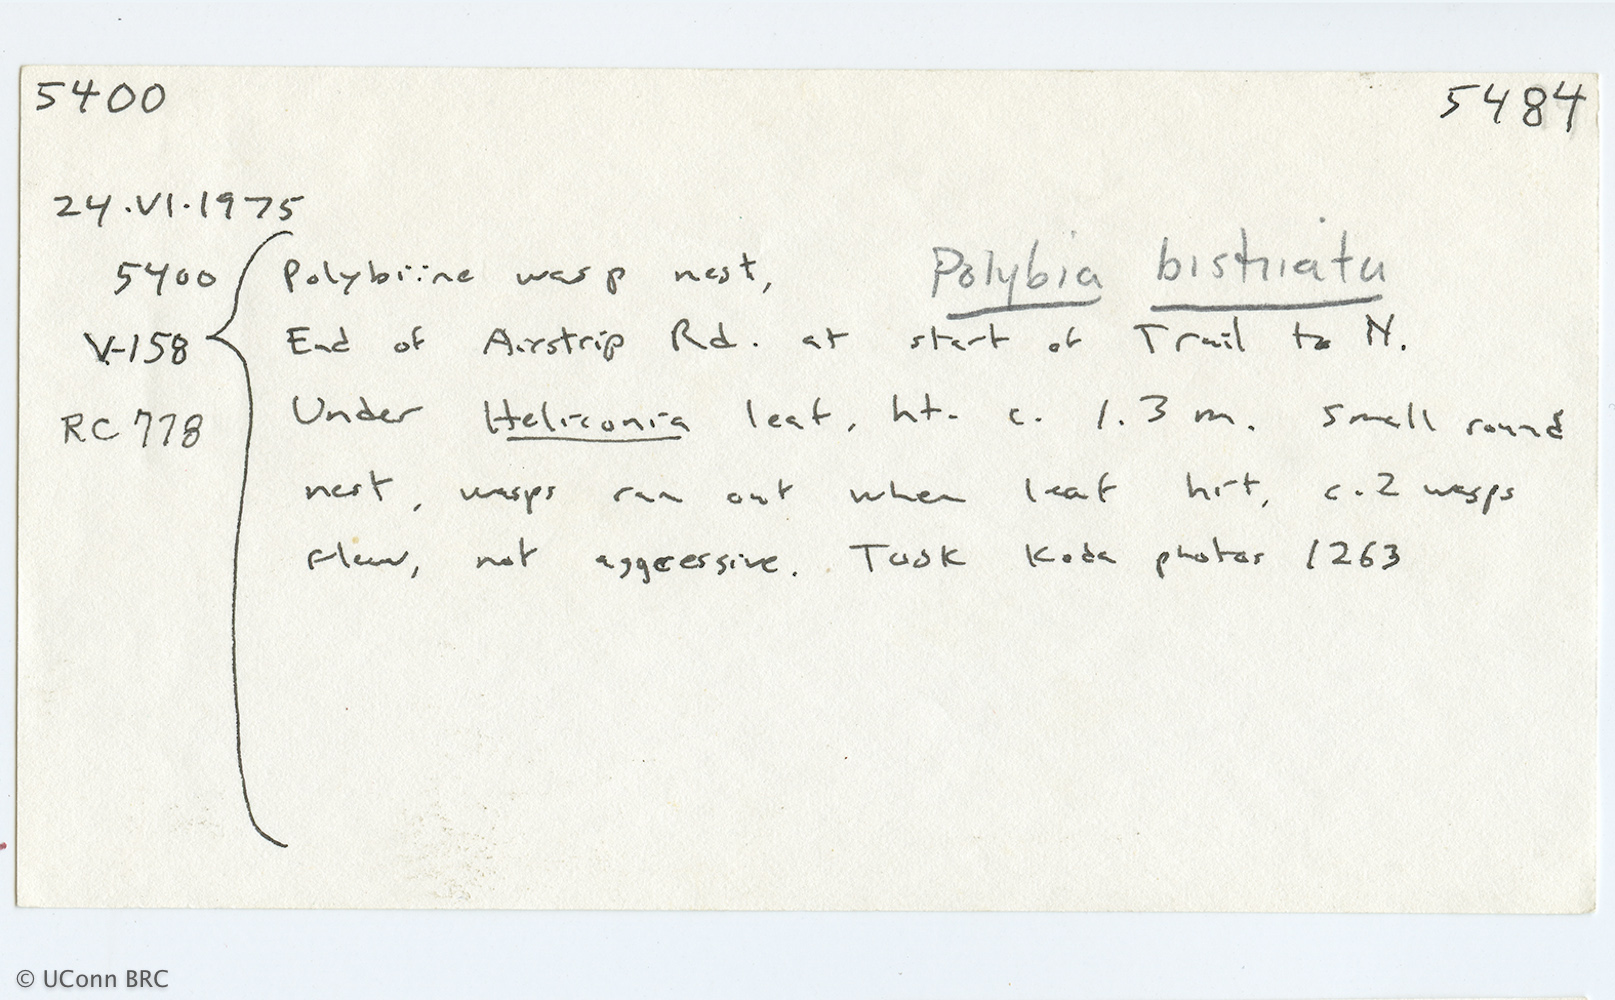 5400 5484
24.VI.1975
5400 Polybiine wasp nest, Polybia bistriata
V-158 End of Airstrip Rd. at start of Trail to N.
RC 778 Under Heliconia leaf, ht. c. 1.3 m. Small round
nest, wasps ran out when leaf hit, c. 2 wasps
flew, not aggressive. Took Koda photos 1263
© UConn BRC